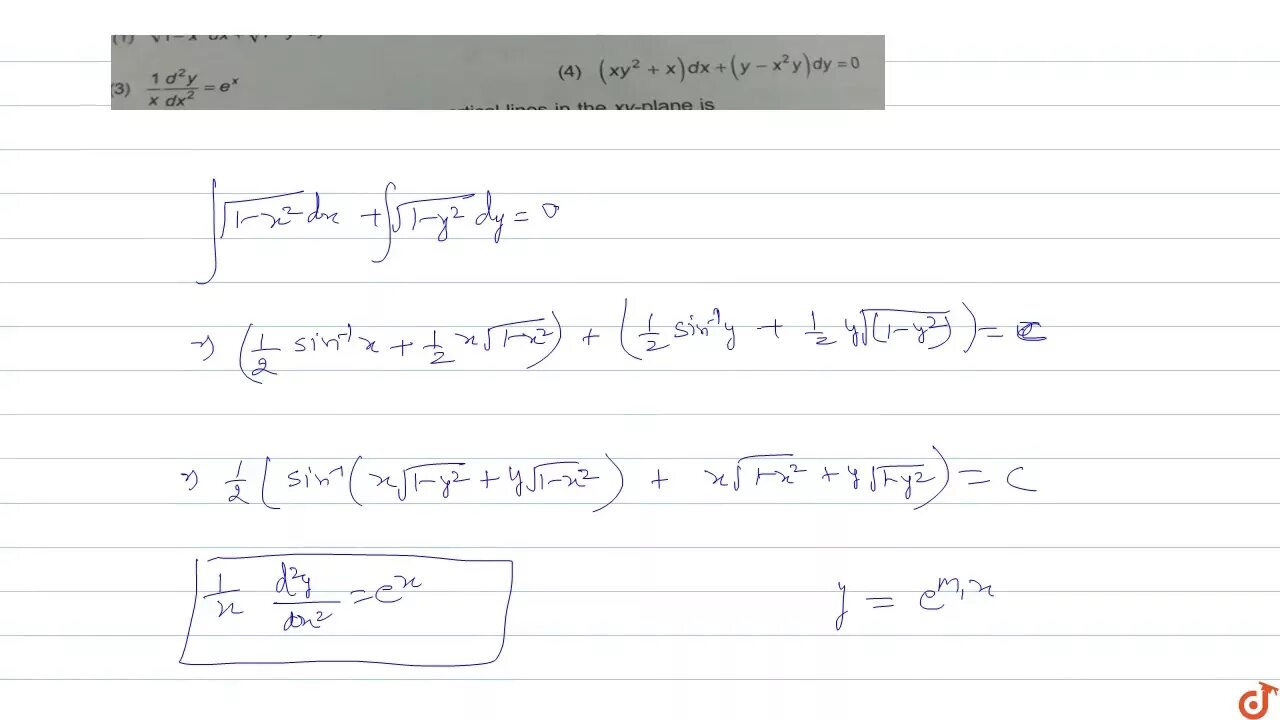 (3) 1/x d²y/dx² = eˣ
(4) (xy² + x)dx + (y − x²y)dy = 0
lines in the xy-plane is
∫√(1−x²) dx + ∫√(1−y²) dy = 0
⇒ (1/2 sin⁻¹x + 1/2 x√(1−x²)) + (1/2 sin⁻¹y + 1/2 y√(1−y²)) = c
⇒ 1/2 [sin⁻¹(x√(1−y²) + y√(1−x²)) + x√(1−x²) + y√(1−y²)] = C
1/x d²y/dx² = eˣ
y = e^(m₁x)